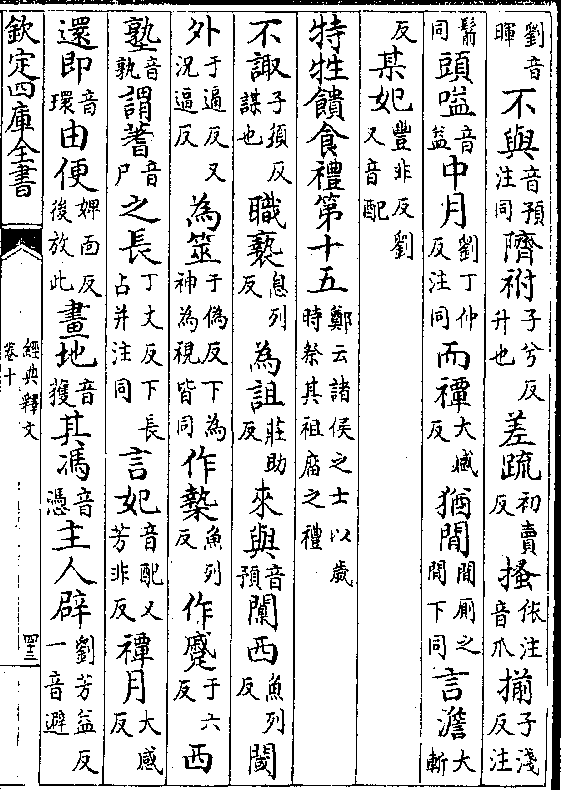 劉音暉不與音預注同隮祔子兮反升也差䟽初賣反搔依注音爪揃子淺反注
鬋同頭嗌音益中月劉丁仲反注同而禫大感反猶閒閒厠之閒下同言澹大斬
反某妃豐非反劉又音配
特牲饋食禮第十五鄭云諸侯之士以歲時祭其祖廟之禮
不諏子須反謀也職䙝息列反為詛莊助反來與音預闑西魚列反閾
外于逼反又況逼反為筮于偽反下為神為視皆同作槷魚列反作蹙子六反西
塾音孰謂蓍音尸之長丁丈反下長占并注同言妃音配又芳非反禫月大感反
還即音環由便婢面反後放此畫地音獲其馮音憑主人辟劉芳益反一音避
欽定四庫全書
經典釋文
卷十
四三